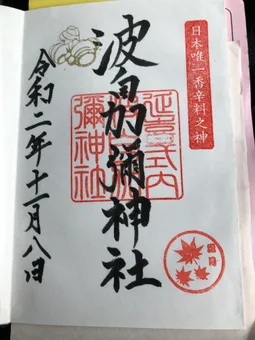 日本唯一香辛料之神
波自加彌神社
延喜式内
彌神社
令和二年十一月八日